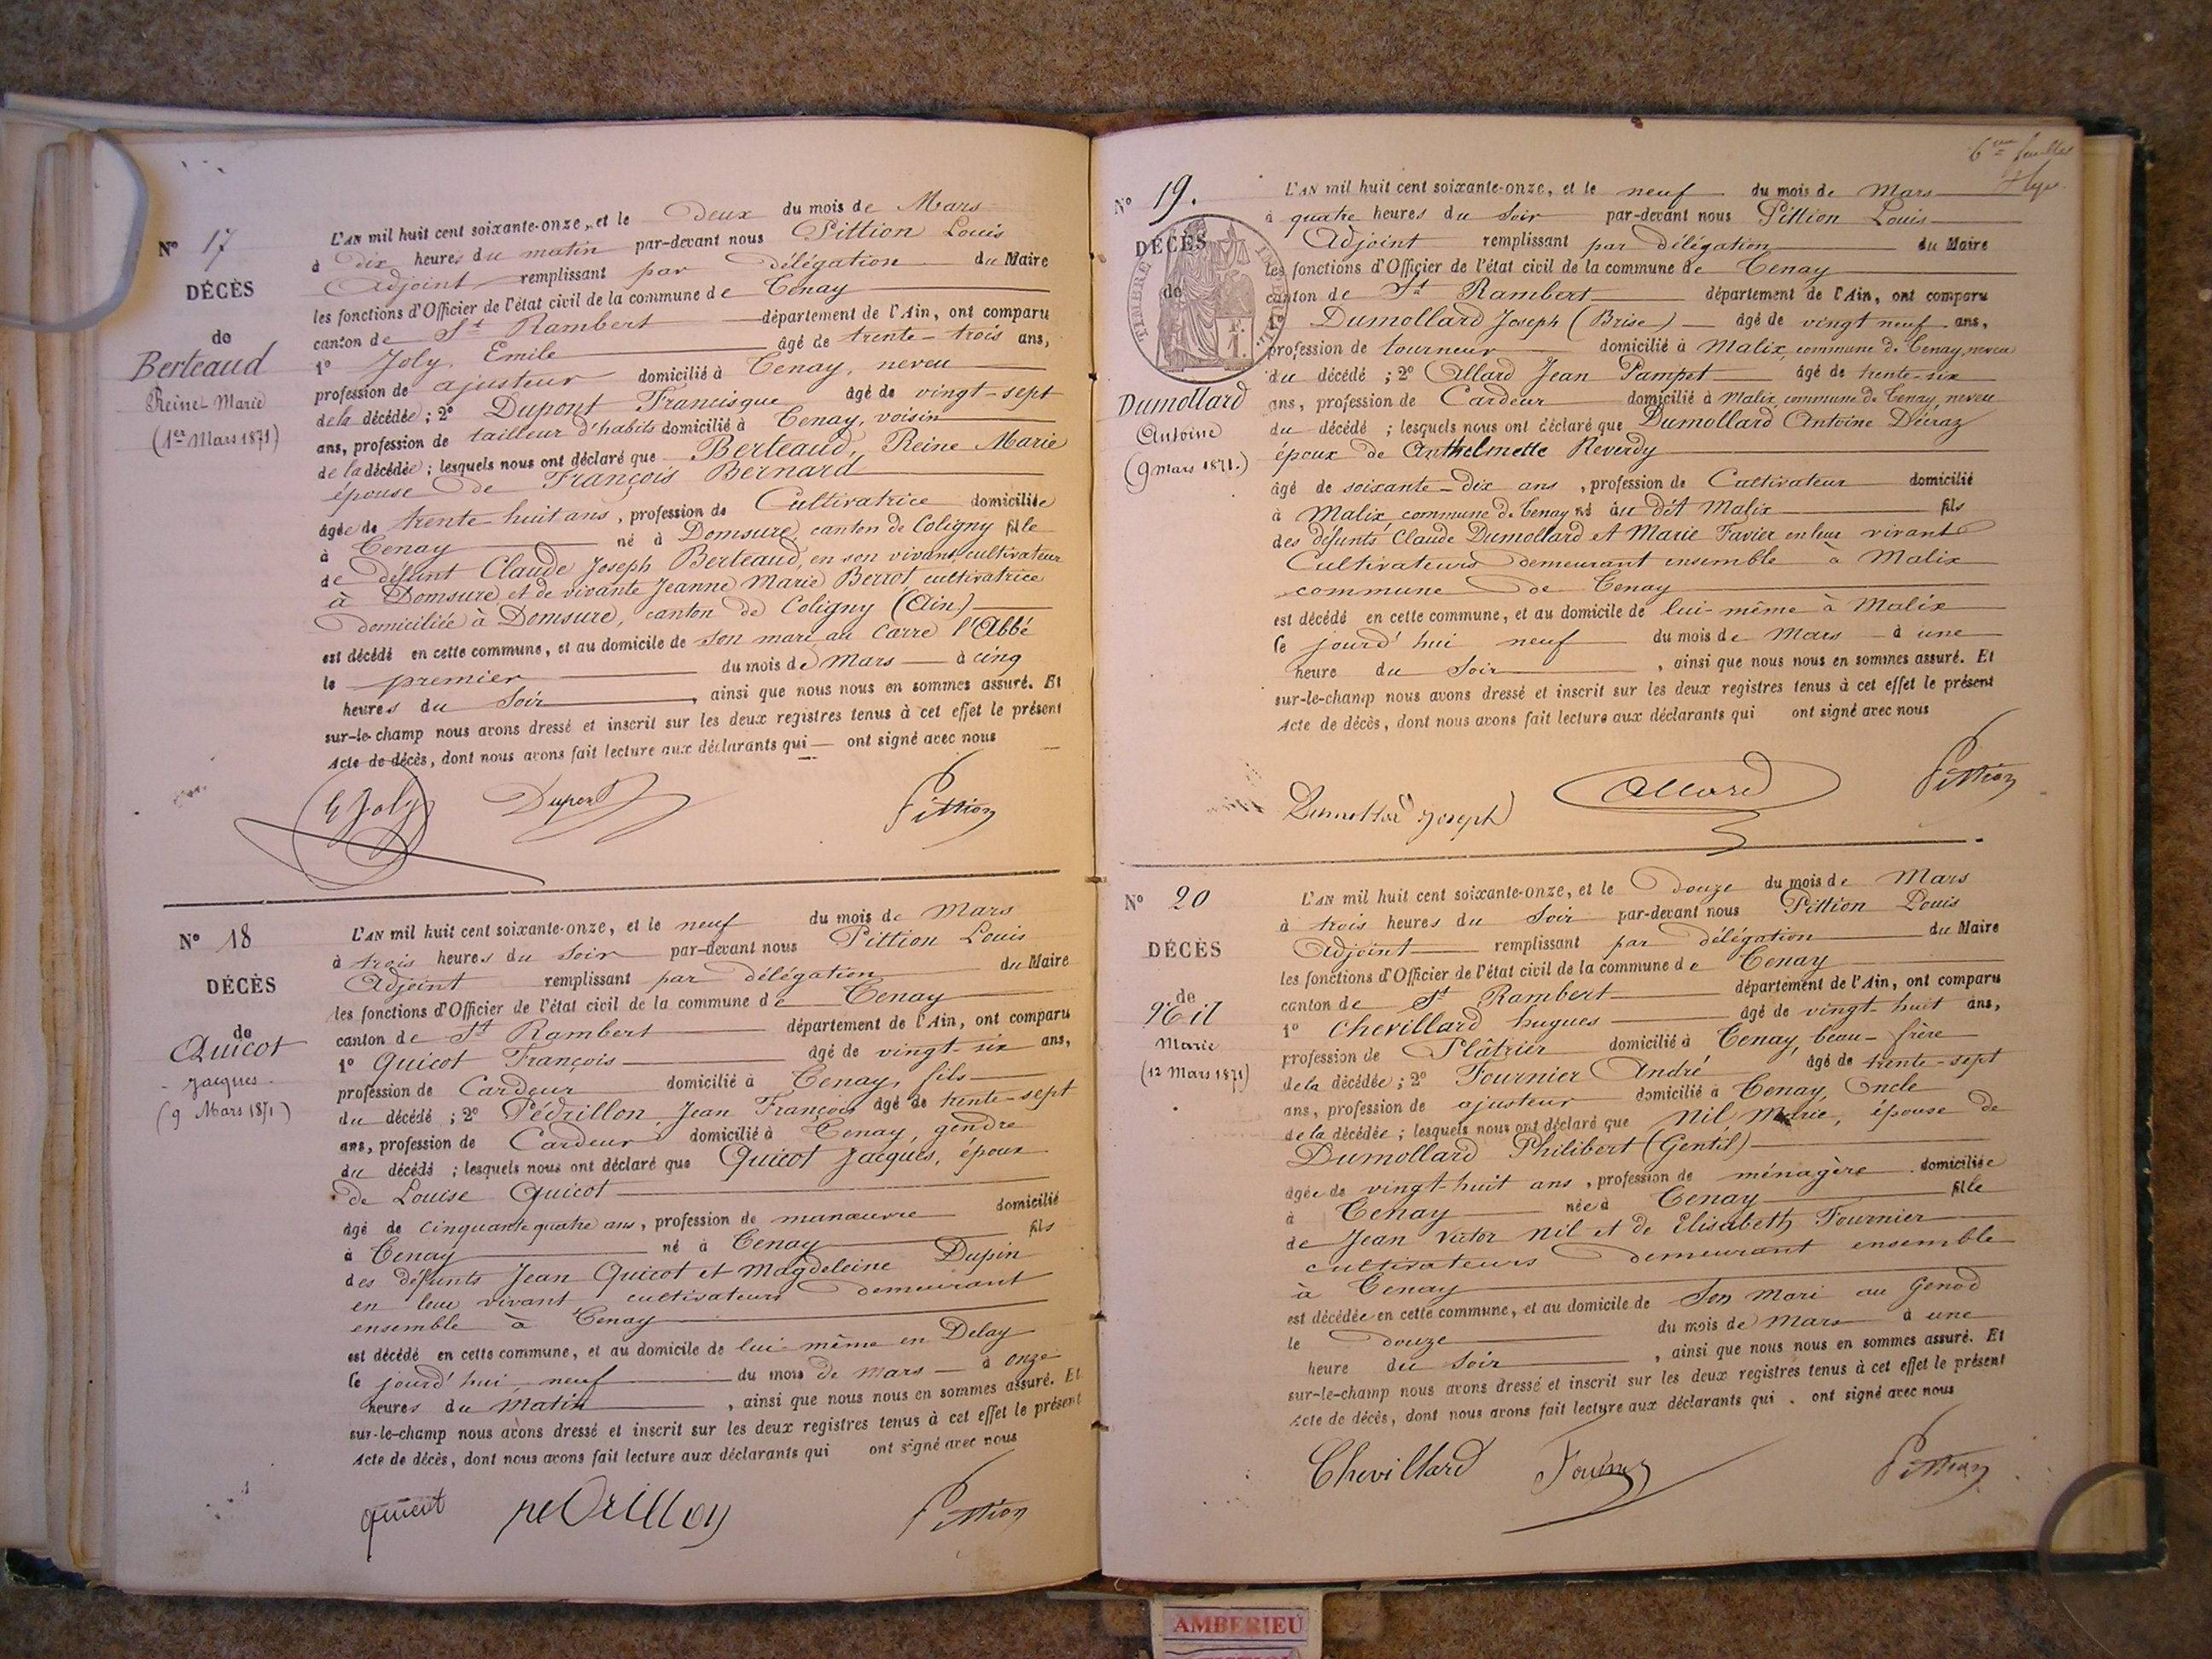 N° 17
DÉCÈS
de
Berteaud
Reine-Marie
(1er Mars 1871)
L'AN mil huit cent soixante-onze, et le Deux du mois de Mars
à dix heures du matin par-devant nous Pittion Louis
Adjoint remplissant par délégation du Maire
les fonctions d'Officier de l'état civil de la commune de Tenay
canton de St Rambert département de l'Ain, ont comparu
1° Joly Emile âgé de trente-trois ans,
profession de ajusteur domicilié à Tenay, neveu
de la décédée ; 2° Dupont Francisque âgé de vingt-sept
ans, profession de tailleur d'habits domicilié à Tenay, voisin
de la décédée ; lesquels nous ont déclaré que Berteaud, Reine Marie
épouse de François Bernard
âgée de trente-huit ans, profession de Cultivatrice domiciliée
à Tenay né à Domsure, canton de Coligny fille
de défunt Claude Joseph Berteaud, en son vivant cultivateur
à Domsure et de vivante Jeanne Marie Berrot cultivatrice
domiciliée à Domsure, canton de Coligny (Ain)
est décédé en cette commune, et au domicile de son mari au Carre l'Abbé
le premier du mois de Mars à cinq
heures du Soir, ainsi que nous nous en sommes assuré. Et
sur-le-champ nous avons dressé et inscrit sur les deux registres tenus à cet effet le présent
Acte de décès, dont nous avons fait lecture aux déclarants qui ont signé avec nous
E Joly Dupont Pittion
N° 18
DÉCÈS
de
Quicot
Jacques
(9 Mars 1871)
L'AN mil huit cent soixante-onze, et le neuf du mois de Mars
à trois heures du Soir par-devant nous Pittion Louis
Adjoint remplissant par délégation du Maire
les fonctions d'Officier de l'état civil de la commune de Tenay
canton de St Rambert département de l'Ain, ont comparu
1° Quicot François âgé de vingt-six ans,
profession de Cardeur domicilié à Tenay, fils
du décédé ; 2° Pédrillon, Jean François âgé de trente-sept
ans, profession de Cardeur domicilié à Tenay, gendre
du décédé ; lesquels nous ont déclaré que Quicot Jacques, époux
de Louise Quicot
âgé de cinquante quatre ans, profession de manœuvre domicilié
à Tenay né à Tenay fils
des défunts Jean Quicot et Magdeleine Dupin
en leur vivant cultivateurs demeurant
ensemble à Tenay
est décédé en cette commune, et au domicile de lui-même en Delay
le jourd'hui neuf du mois de Mars à onze
heures du Matin, ainsi que nous nous en sommes assuré. Et
sur-le-champ nous avons dressé et inscrit sur les deux registres tenus à cet effet le présent
Acte de décès, dont nous avons fait lecture aux déclarants qui ont signé avec nous
quicot pedrillon Pittion
6me feuillet
N° 19.
DÉCÈS
de
TIMBRE IMPÉRIAL
1 F.
Dumollard
Antoine
(9 mars 1871.)
L'AN mil huit cent soixante-onze, et le neuf du mois de Mars
à quatre heures du Soir par-devant nous Pittion Louis
Adjoint remplissant par délégation du Maire
les fonctions d'Officier de l'état civil de la commune de Tenay
canton de St Rambert département de l'Ain, ont comparu
1° Dumollard Joseph (Brise) âgé de vingt neuf ans,
profession de tourneur domicilié à Malix, commune de Tenay, neveu
du décédé ; 2° Allard Jean Pampet âgé de trente-six
ans, profession de Cardeur domicilié à Malix commune de Tenay, neveu
du décédé ; lesquels nous ont déclaré que Dumollard Antoine Déiraz
époux de Anthelmette Reverdy
âgé de soixante-dix ans, profession de Cultivateur domicilié
à Malix, commune de Tenay né au dit Malix fils
des défunts Claude Dumollard et Marie Favier en leur vivant
Cultivateurs demeurant ensemble à Malix
commune de Tenay
est décédé en cette commune, et au domicile de lui-même à Malix
le jourd'hui neuf du mois de Mars à une
heure du Soir, ainsi que nous nous en sommes assuré. Et
sur-le-champ nous avons dressé et inscrit sur les deux registres tenus à cet effet le présent
Acte de décès, dont nous avons fait lecture aux déclarants qui ont signé avec nous
Dumollard Joseph Allard Pittion
N° 20
DÉCÈS
de
Nil
Marie
(12 Mars 1871)
L'AN mil huit cent soixante-onze, et le Douze du mois de Mars
à trois heures du Soir par-devant nous Pittion Louis
Adjoint remplissant par délégation du Maire
les fonctions d'Officier de l'état civil de la commune de Tenay
canton de St Rambert département de l'Ain, ont comparu
1° Chevillard hugues âgé de vingt huit ans,
profession de Plâtrier domicilié à Tenay, beau-frère
de la décédée ; 2° Fournier André âgé de trente-sept
ans, profession de ajusteur domicilié à Tenay, Oncle
de la décédée ; lesquels nous ont déclaré que Nil Marie, épouse de
Dumollard Philibert (Gentil)
âgée de vingt-huit ans, profession de ménagère domiciliée
à Tenay née à Tenay fille
de Jean Victor Nil et de Elisabeth Fournier
cultivateurs demeurant ensemble
à Tenay
est décédée en cette commune, et au domicile de Son Mari au Genod
le douze du mois de Mars à une
heure du Soir, ainsi que nous nous en sommes assuré. Et
sur-le-champ nous avons dressé et inscrit sur les deux registres tenus à cet effet le présent
Acte de décès, dont nous avons fait lecture aux déclarants qui . ont signé avec nous
Chevillard Fournier Pittion
AMBERIEU